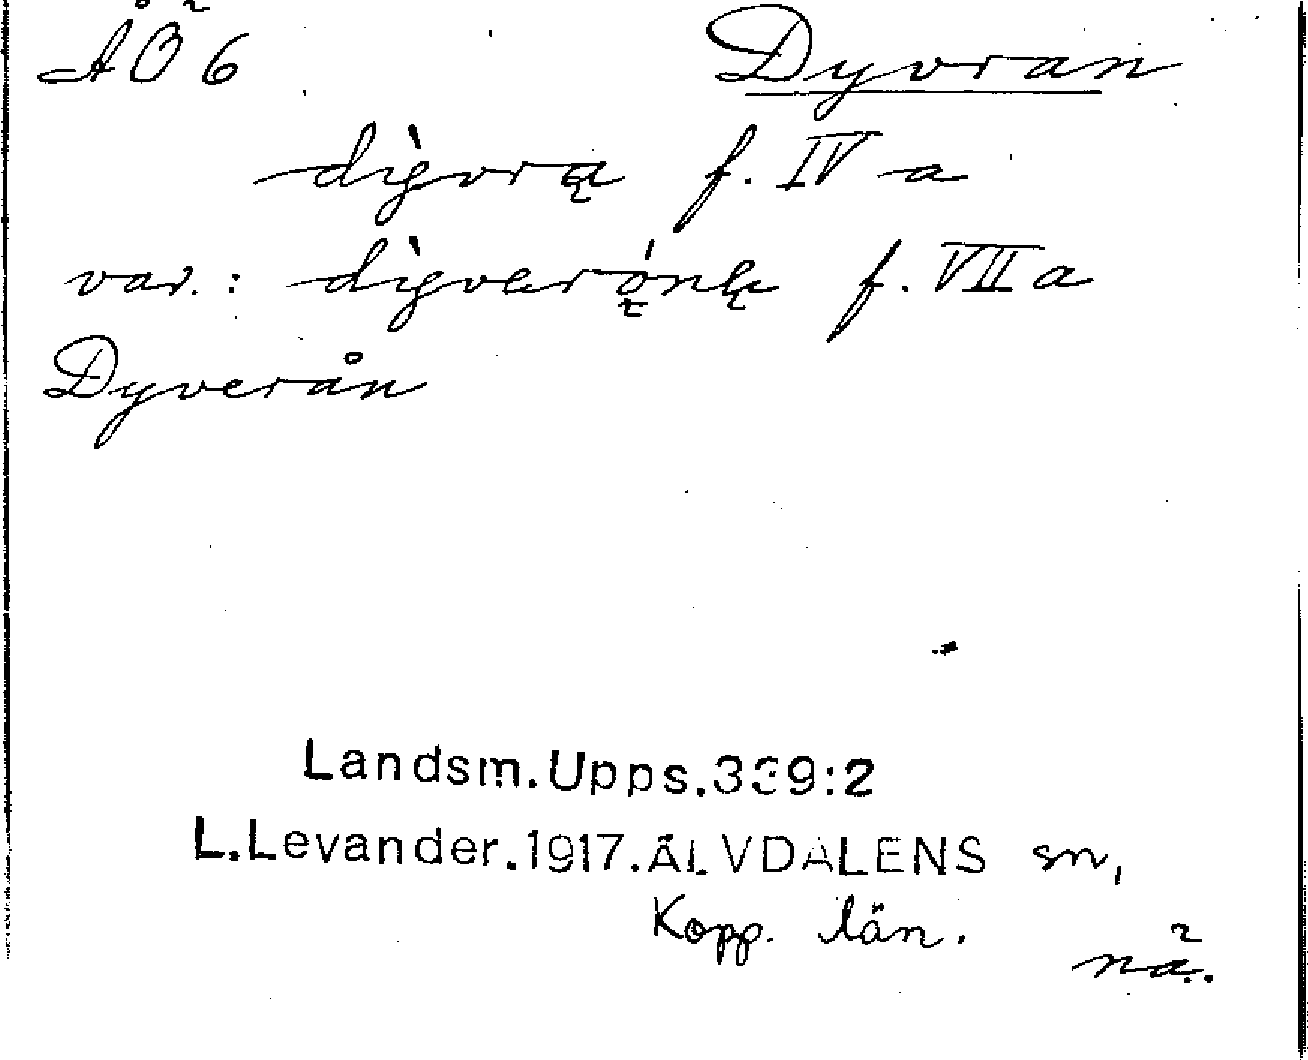 ÅÖ 6 Dyvran
dı̀gvrą f. IV a
var.: dı̀gverǫ́nę f. VII a
Dyverån
Landsm.Upps.339:2
L.Levander.1917.ÄLVDALENS sn,
Kopp. län.